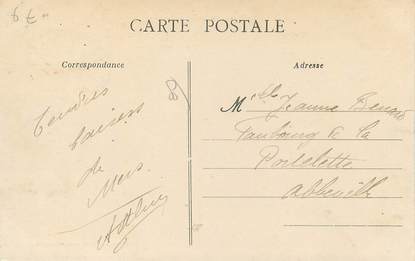 CARTE POSTALE
Correspondance
Tendres
baisers
de
Mers
Adresse
Mlle Jeanne
Faubourg de la
Portelette
Abbeville